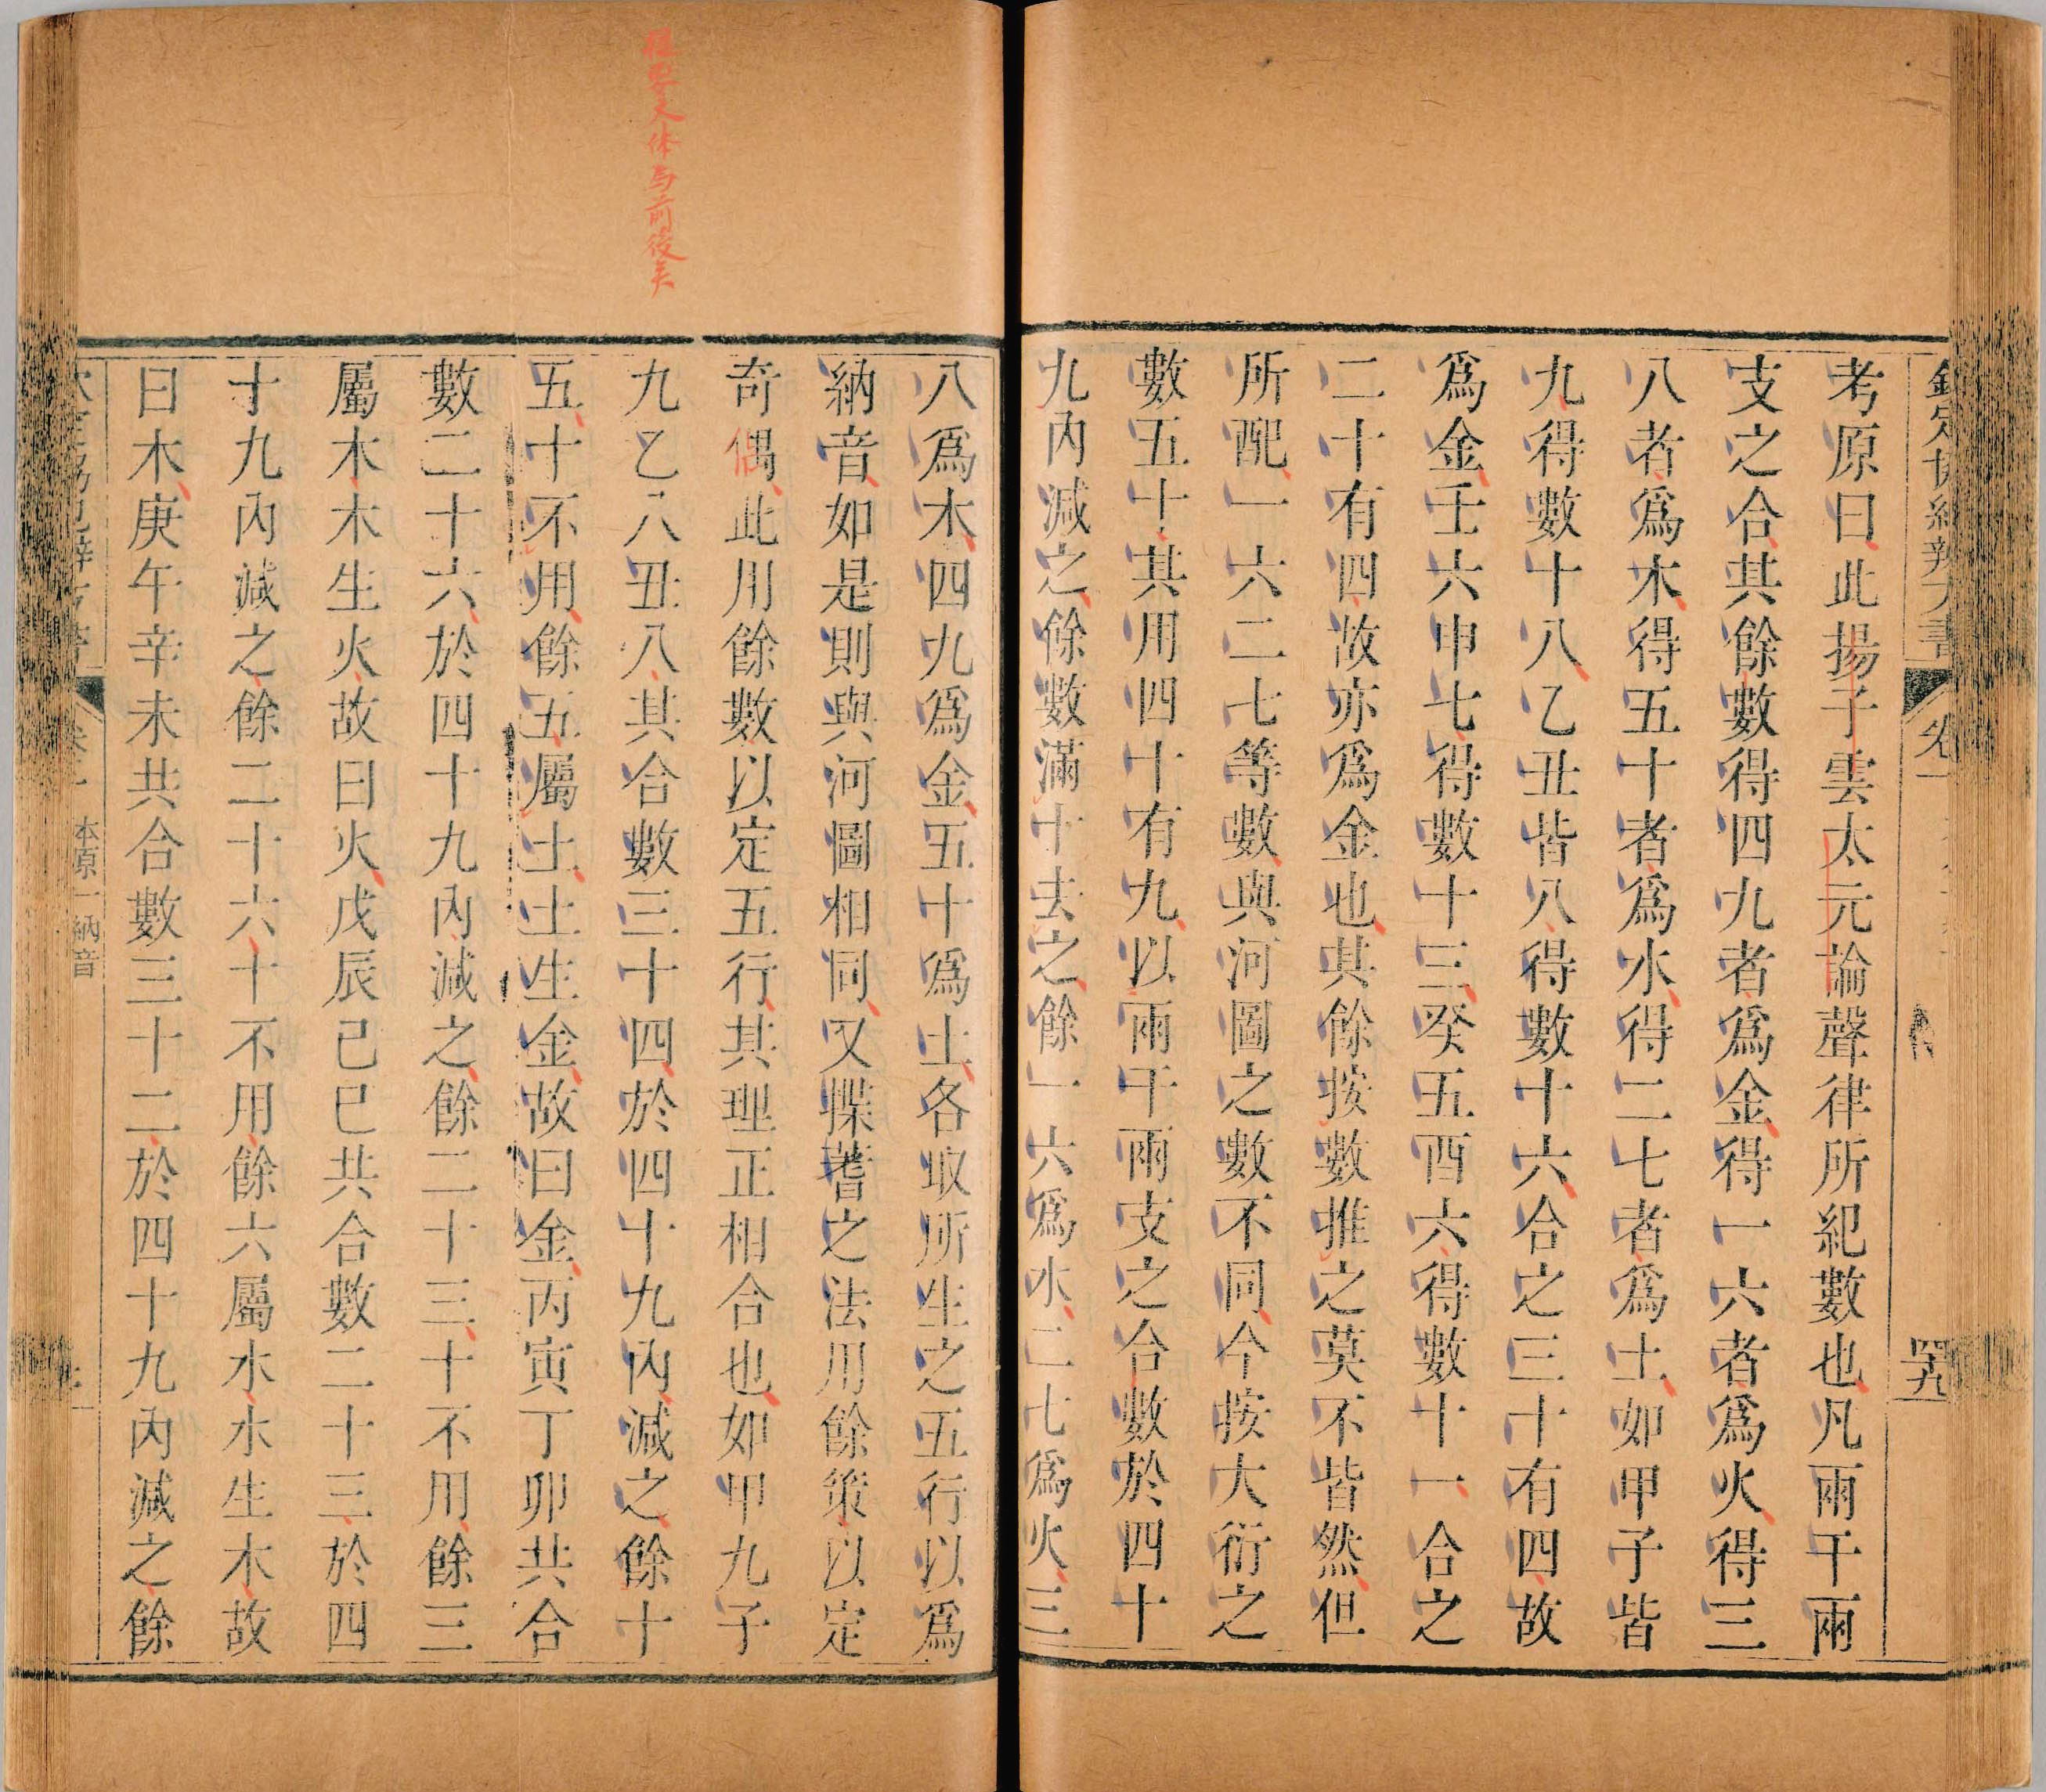 欽定協紀辨方書 卷一
四九
考原曰此揚子雲太元論聲律所紀數也凡兩干兩
支之合其餘數得四九者爲金得一六者爲火得三
八者爲木得五十者爲水得二七者爲土如甲子皆
九得數十八乙丑皆八得數十六合之三十有四故
爲金壬六申七得數十三癸五酉六得數十一合之
二十有四故亦爲金也其餘按數推之莫不皆然但
所配一六二七等數與河圖之數不同今按大衍之
數五十其用四十有九以兩干兩支之合數於四十
九內減之餘數滿十去之餘一六爲水二七爲火三
八爲木四九爲金五十爲土各取所生之五行以爲
納音如是則與河圖相同又揲蓍之法用餘策以定
奇偶此用餘數以定五行其理正相合也如甲九子
九乙八丑八其合數三十四於四十九內減之餘十
五十不用餘五屬土土生金故曰金丙寅丁卯共合
數二十六於四十九內減之餘二十三十不用餘三
屬木木生火故曰火戊辰己巳共合數二十三於四
十九內減之餘二十六十不用餘六屬水水生木故
曰木庚午辛未共合數三十二於四十九內減之餘
本原一納音
文体与前後